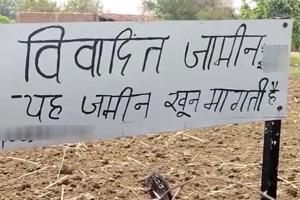 विवादित जामीन:
यह जमीन खून मागती है.